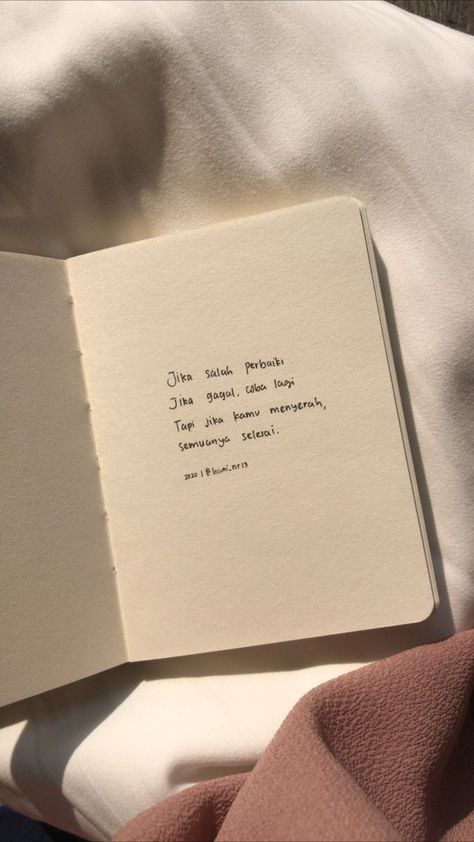 Jika salah perbaiki
Jika gagal, coba lagi
Tapi jika kamu menyerah,
semuanya selesai.
2020 | @hami_nr13